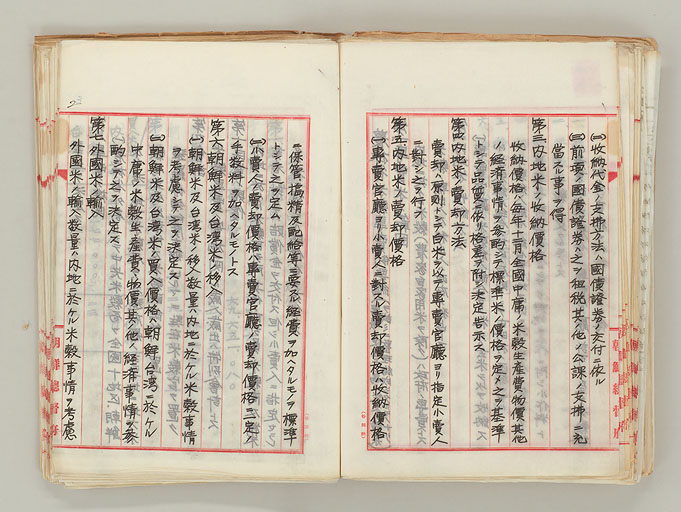 (二)収納代金ノ支拂方法ハ國債證券ノ交付ニ依ル
(三)前項ノ國債證券ハ之ヲ租税其ノ他ノ公課ノ支拂ニ充
當スル事ヲ得
第三、内地米ノ收納價格
收納價格ハ毎年十一月全國中庸ノ米穀生産費物價其他
ノ經濟事情ヲ參酌シテ標準米ノ價格ヲ定メ之ヲ基準
トシテ品質ニ依リ格差ヲ附シ決定告示ス
第四、内地米ノ賣却方法
賣却ハ原則トシテ白米ヲ以テ專賣官廳ヨリ指定小賣人
ニ對シ之ヲ行フ
第五、内地米ノ賣却價格
(一)專賣官廳ヨリ小賣人ニ對スル賣却價格ハ收納價格
ニ保管搗精及配給等ニ要スル經費ヲ加ヘタルモノヲ標準
トシテ之ヲ定ム
(二)小賣人ノ賣却價格ハ專賣官廳ノ賣却價格ニ一定ノ
手數料ヲ加ヘタルモノトス
第六、朝鮮米及台湾米ノ移入
(一)朝鮮米及台湾米ノ移入數量ハ内地ニ於ケル米穀事情
ヲ考慮シテ之ヲ決定ス
(二)朝鮮米及台湾米ノ買入價格ハ朝鮮台湾ニ於ケル
中庸ノ米穀生産費、物價其ノ他ノ經濟事情ヲ參
酌シテ之ヲ決定ス
第七、外國米ノ輸入
外國米ノ輸入數量ハ内地ニ於ケル米穀事情ヲ考慮
朝鮮總督府